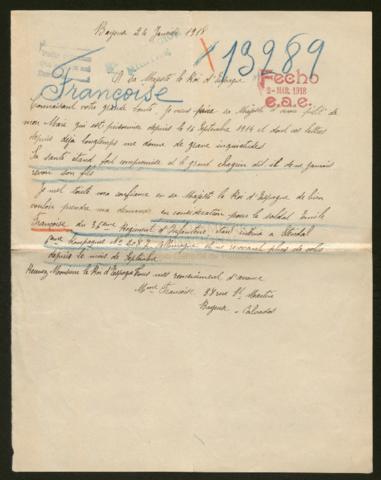 Bayeux 24 Janvier 1918
13989
A sa Majesté le Roi d'Espagne
Françoise
Fecho
2-MAR. 1918
e.a.e.
Connaissant votre grande bonté. Je vous prie sa Majesté d'avoir pitié de
mon Mari qui est prisonnier depuis le 15 Septembre 1914 et dont ses lettres
depuis déjà longtemps me donne de grave inquiétudes
Sa santé étant fort compromise et le grand chagrin dit-il de ne jamais
revoir son fils
Je met toute ma confiance en sa Majesté le Roi d'Espagne de bien
vouloir prendre ma demande en considération pour le soldat Emile
Françoise du Régiment d'Infanterie interné à Stendal
Compagnie No 2082 Allemagne et ne recevant plus de colis
depuis le mois de Septembre
Recevez Monsieur le Roi d'Espagne tous mes remerciements d'avance
Mme Françoise 38 rue St Martin
Bayeux - Calvados